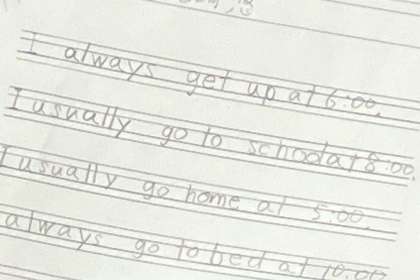 I always get up at 6:00.
I usually go to school at 8:00.
I usually go home at 5:00.
always go to bed at 10:00